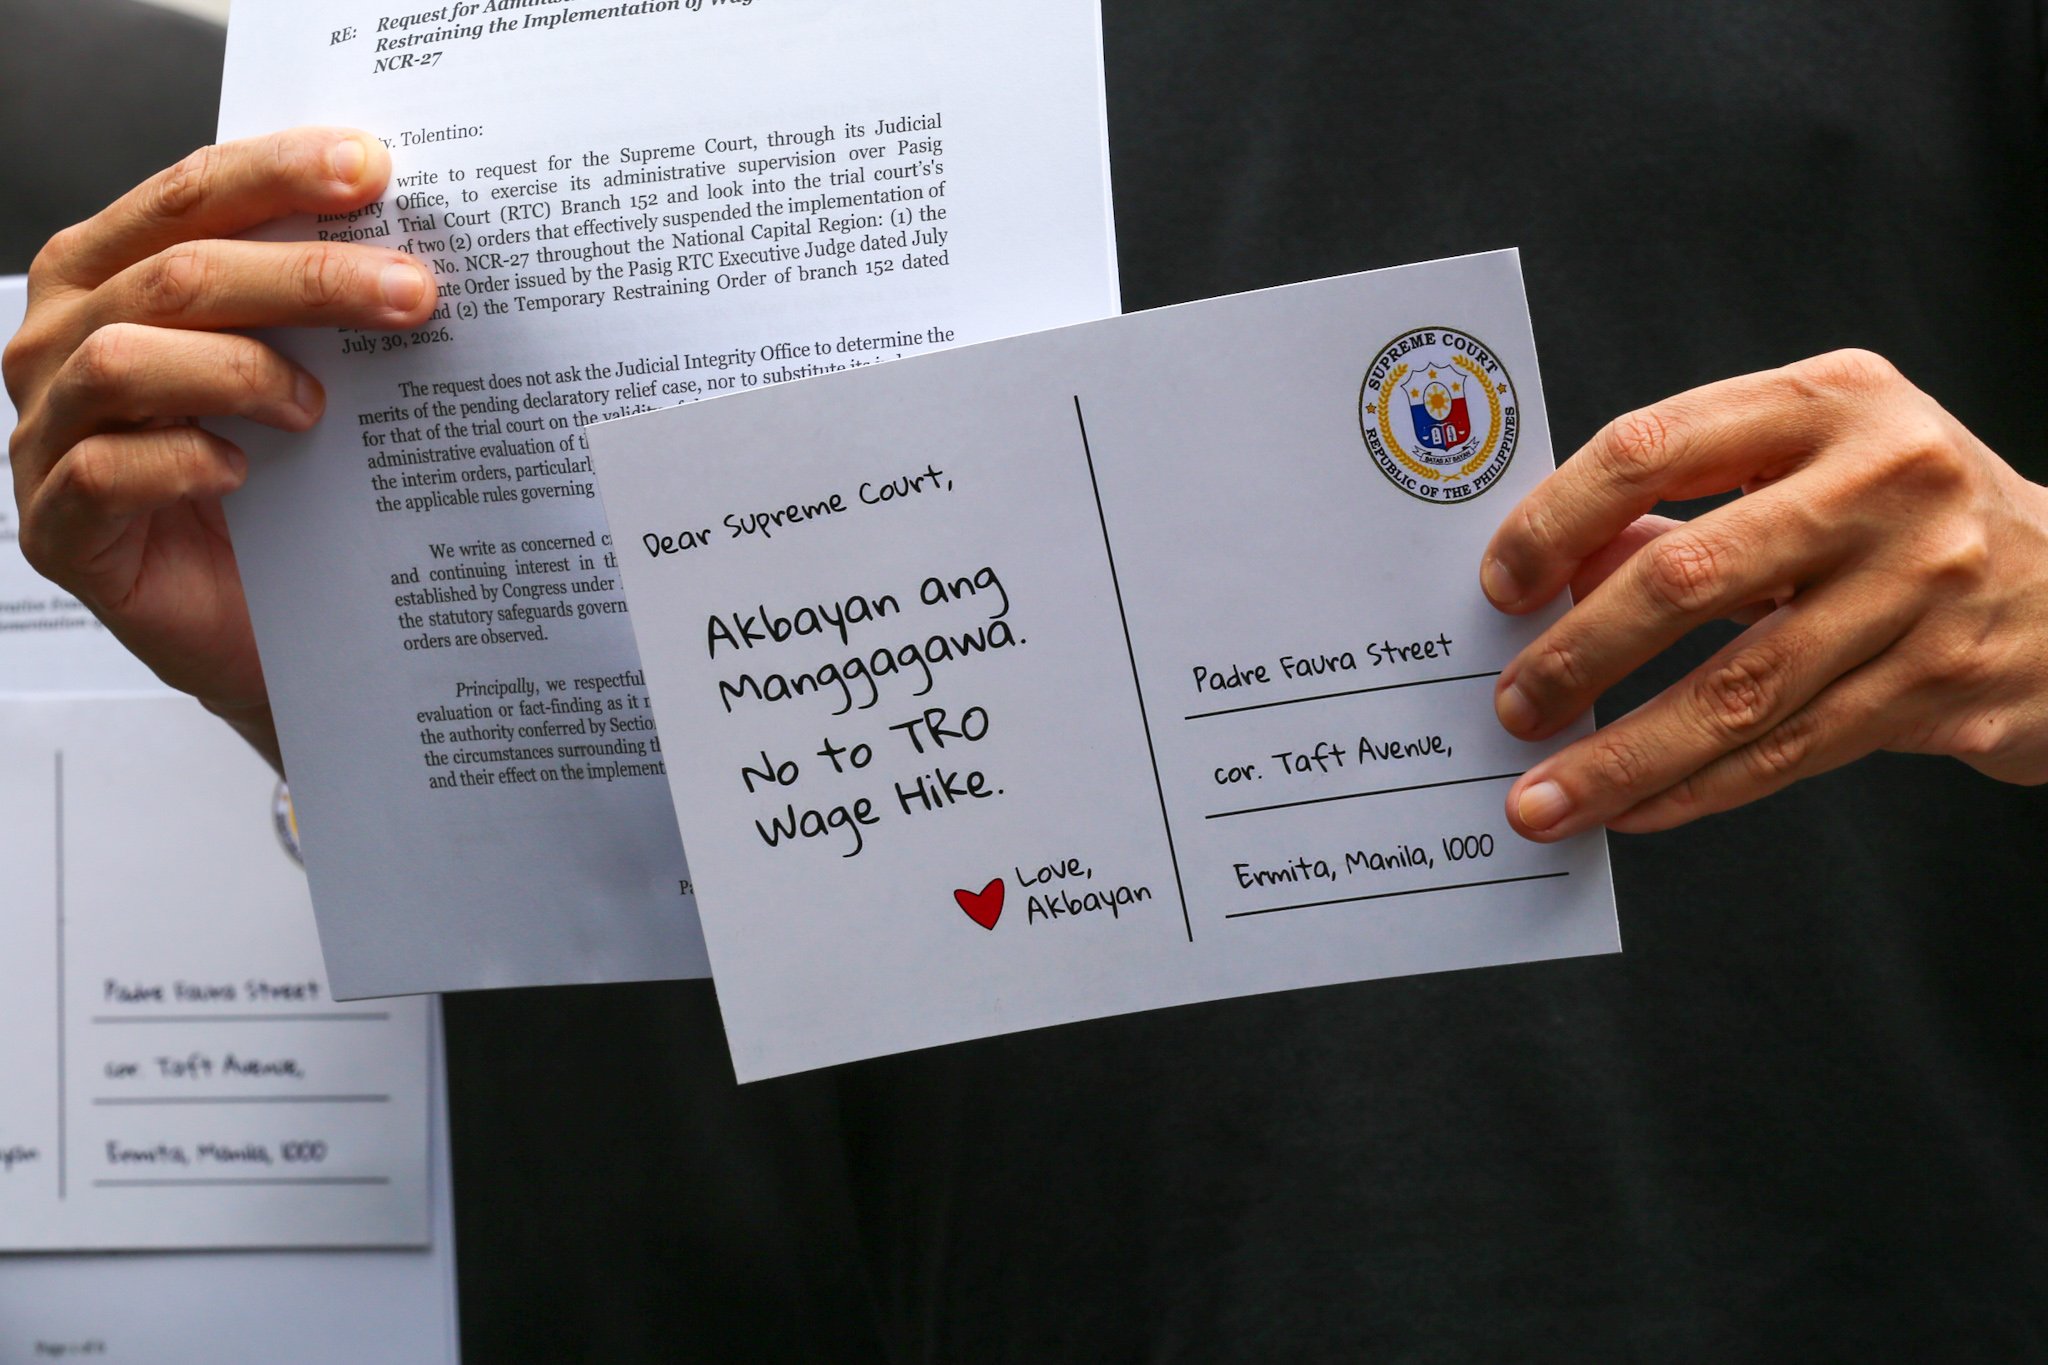 RE: Request for
Restraining the Implementation of
NCR-27
Tolentino:
write to request for the Supreme Court, through its Judicial
Integrity Office, to exercise its administrative supervision over Pasig
Regional Trial Court (RTC) Branch 152 and look into the trial court's's
of two (2) orders that effectively suspended the implementation of
No. NCR-27 throughout the National Capital Region: (1) the
Order issued by the Pasig RTC Executive Judge dated July
(2) the Temporary Restraining Order of branch 152 dated
July 30, 2026.
The request does not ask the Judicial Integrity Office to determine the
merits of the pending declaratory relief case, nor to substitute its
for that of the trial court on the validity
administrative evaluation of
the interim orders, particularly
the applicable rules governing
We write as concerned
and continuing interest in
established by Congress under
the statutory safeguards
orders are observed.
Principally, we
evaluation or fact-finding as it
the authority conferred by
the circumstances surrounding
and their effect on the
Dear Supreme Court,
Akbayan ang
Manggagawa.
No to TRO
Wage Hike.
Love,
Akbayan
SUPREME COURT
REPUBLIC OF THE PHILIPPINES
BATAS AT BAYAN
Padre Faura Street
cor. Taft Avenue,
Ermita, Manila, 1000
Padre Faura Street
cor. Taft Avenue,
Ermita, Manila, 1000